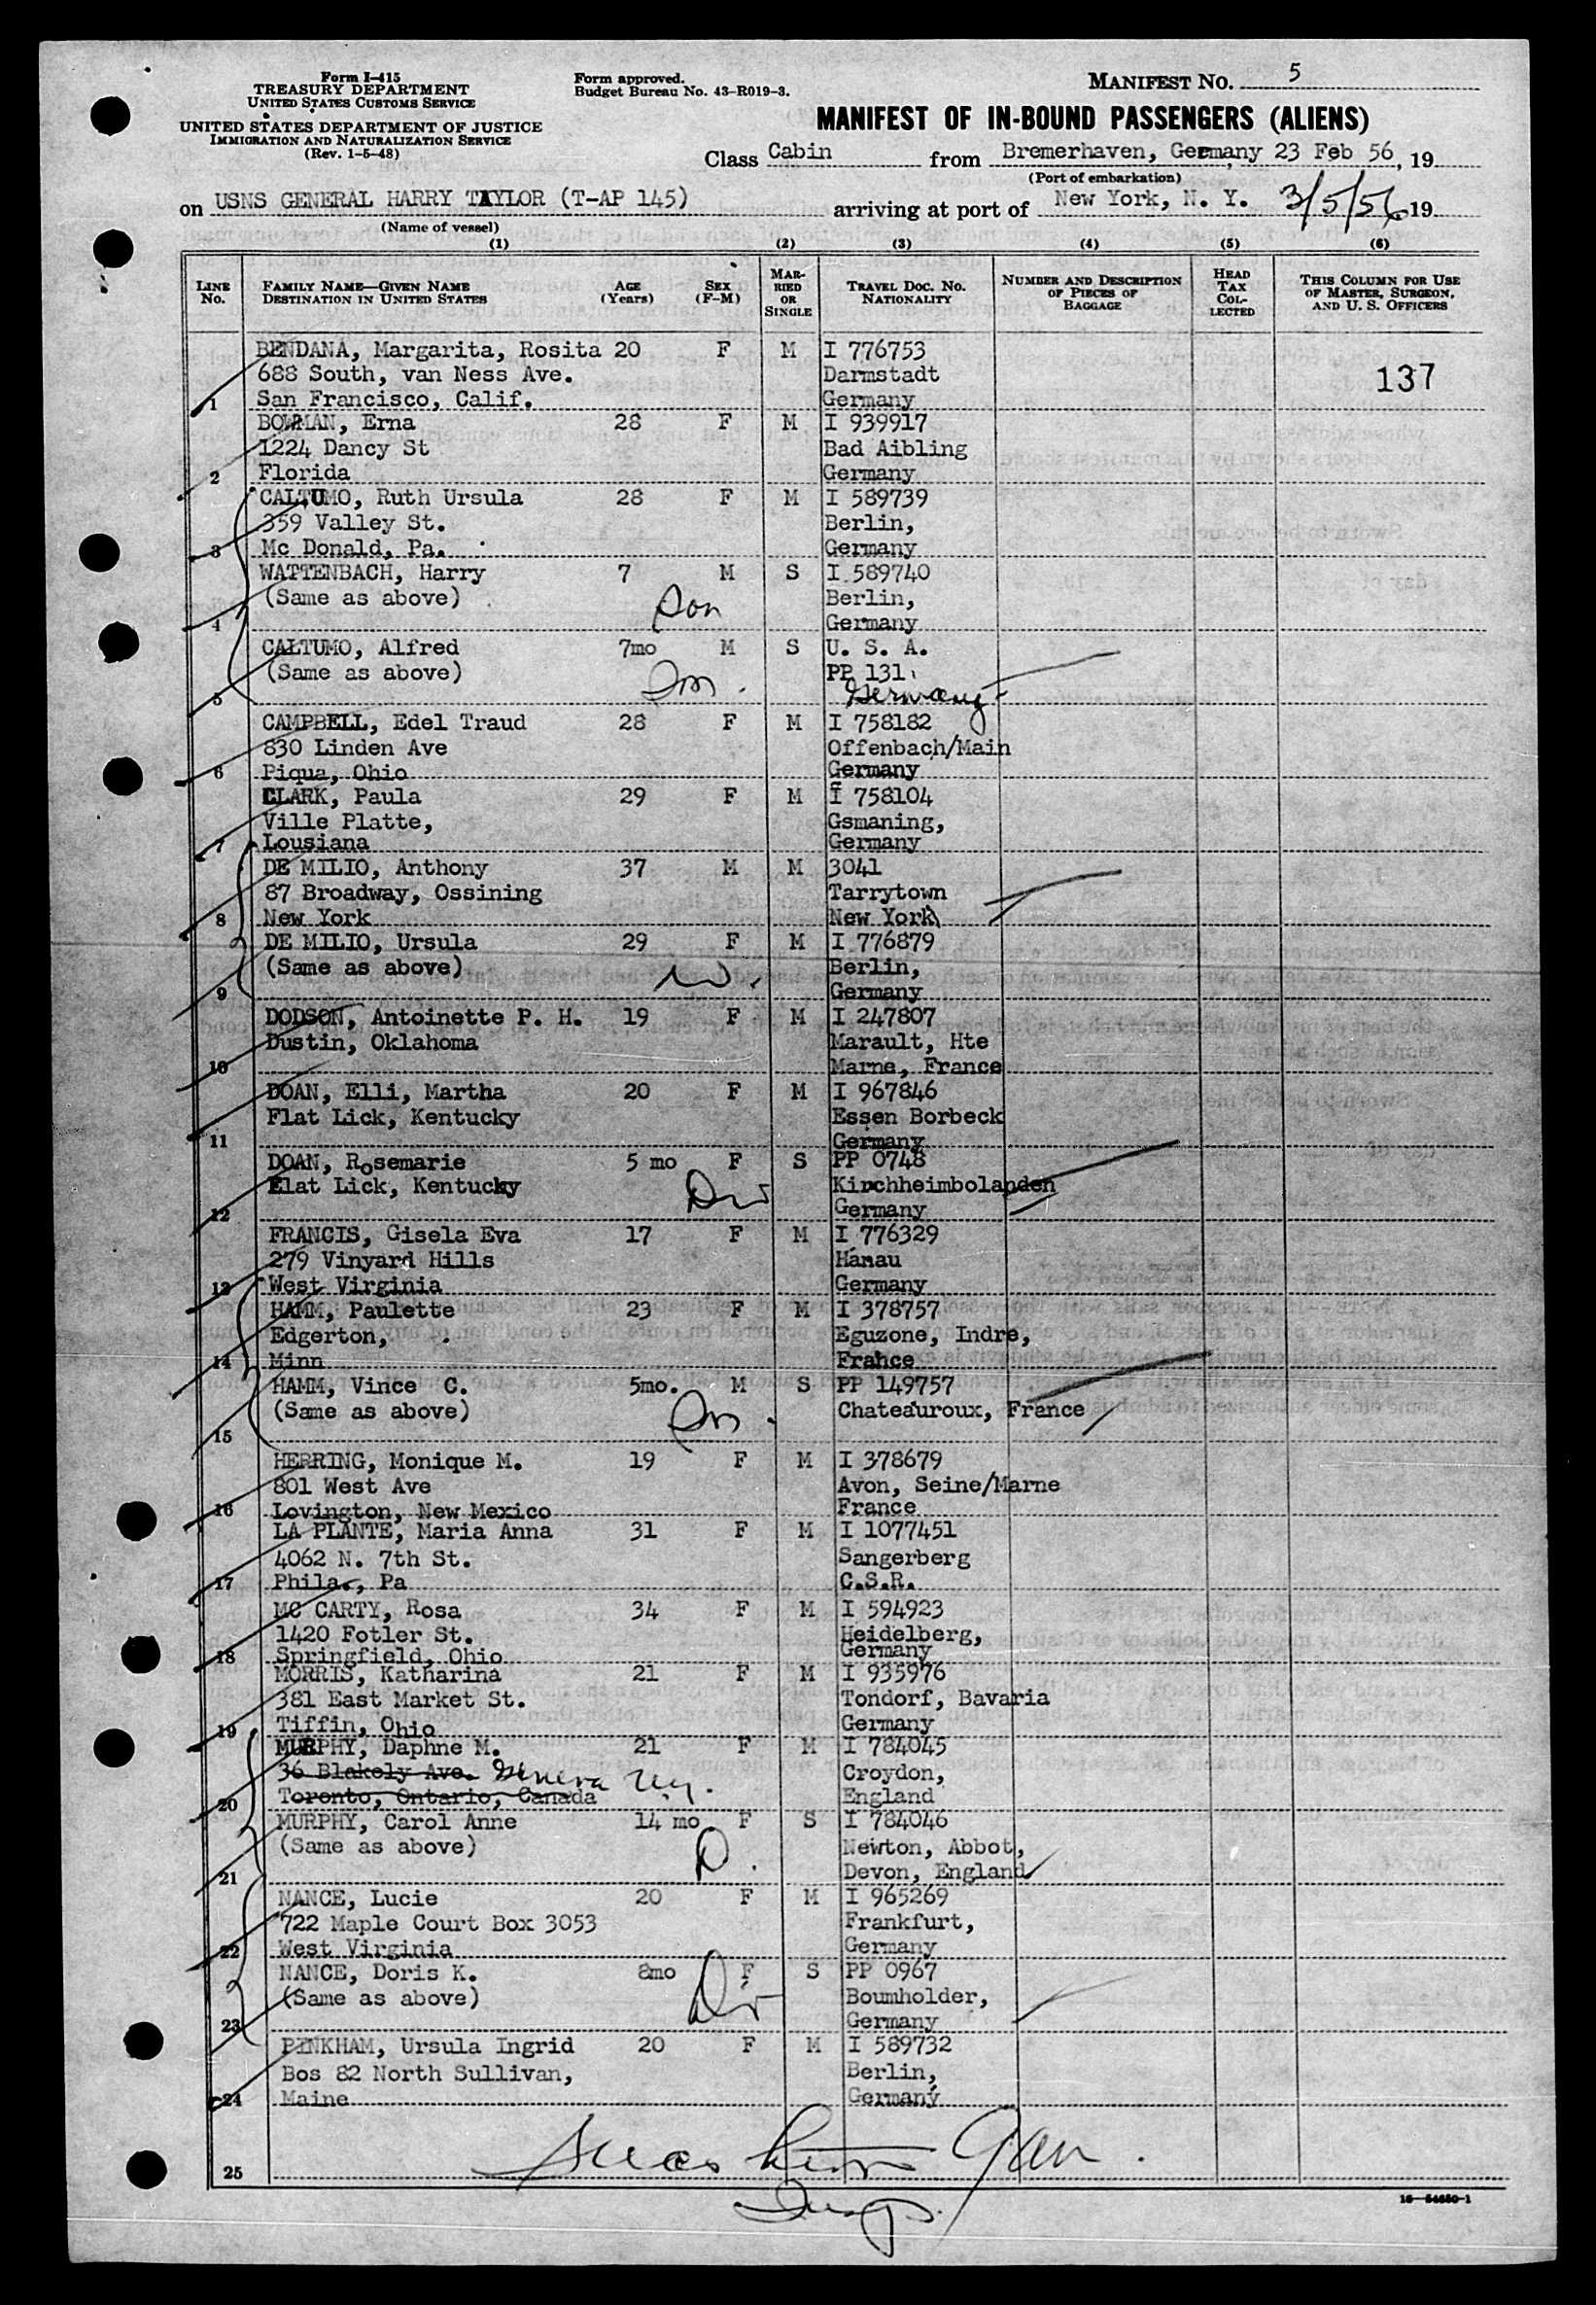 Form I-415
TREASURY DEPARTMENT
UNITED STATES CUSTOMS SERVICE
UNITED STATES DEPARTMENT OF JUSTICE
IMMIGRATION AND NATURALIZATION SERVICE
(Rev. 1-5-48)
Form approved.
Budget Bureau No. 43-R019-3.
MANIFEST NO. 5
MANIFEST OF IN-BOUND PASSENGERS (ALIENS)
Class Cabin from Bremerhaven, Germany 23 Feb 56, 19
(Port of embarkation)
on USNS GENERAL HARRY TAYLOR (T-AP 145) arriving at port of New York, N. Y. 3/5/56, 19
(Name of vessel)
(1) (2) (3) (4) (5) (6)
LINE NO. FAMILY NAME—GIVEN NAME DESTINATION IN UNITED STATES AGE (Years) SEX (F-M) MARRIED OR SINGLE TRAVEL DOC. NO. NATIONALITY NUMBER AND DESCRIPTION OF PIECES OF BAGGAGE HEAD TAX COLLECTED THIS COLUMN FOR USE OF MASTER, SURGEON, AND U. S. OFFICERS
BENDANA, Margarita, Rosita 20 F M I 776753
688 South, van Ness Ave. Darmstadt 137
1 San Francisco, Calif. Germany
BOWMAN, Erna 28 F M I 939917
1224 Dancy St Bad Aibling
2 Florida Germany
CALTUMO, Ruth Ursula 28 F M I 589739
359 Valley St. Berlin,
3 Mc Donald, Pa. Germany
WATTENBACH, Harry 7 M S I 589740
(Same as above) Son Berlin,
4 Germany
CALTUMO, Alfred 7mo M S U. S. A.
(Same as above) PP 131
5 Son. Germany
CAMPBELL, Edel Traud 28 F M I 758182
830 Linden Ave Offenbach/Main
6 Piqua, Ohio Germany
CLARK, Paula 29 F M I 758104
Ville Platte, Gsmaning,
7 Lousiana Germany
DE MILIO, Anthony 37 M M 3041
87 Broadway, Ossining Tarrytown
8 New York New York
DE MILIO, Ursula 29 F M I 776879
(Same as above) W. Berlin,
9 Germany
DODSON, Antoinette P. H. 19 F M I 247807
Dustin, Oklahoma Marault, Hte
10 Marne, France
DOAN, Elli, Martha 20 F M I 967846
Flat Lick, Kentucky Essen Borbeck
11 Germany
DOAN, Rosemarie 5 mo F S PP 0748
Flat Lick, Kentucky Kirchheimbolanden
12 Germany
FRANCIS, Gisela Eva 17 F M I 776329
279 Vinyard Hills Hanau
13 West Virginia Germany
HAMM, Paulette 23 F M I 378757
Edgerton, Eguzone, Indre,
14 Minn France
HAMM, Vince C. 5mo. M S PP 149757
(Same as above) Son. Chateauroux, France
15
HERRING, Monique M. 19 F M I 378679
801 West Ave Avon, Seine/Marne
16 Lovington, New Mexico France
LA PLANTE, Maria Anna 31 F M I 1077451
4062 N. 7th St. Sangerberg
17 Phila., Pa C.S.R.
MC CARTY, Rosa 34 F M I 594923
1420 Fotler St. Heidelberg,
18 Springfield, Ohio Germany
MORRIS, Katharina 21 F M I 935976
381 East Market St. Tondorf, Bavaria
19 Tiffin, Ohio Germany
MURPHY, Daphne M. 21 F M I 784045
36 Blakely Ave. Geneva N.Y. Croydon,
20 Toronto, Ontario, Canada England
MURPHY, Carol Anne 14 mo F S I 784046
(Same as above) D. Newton, Abbot,
21 Devon, England
NANCE, Lucie 20 F M I 965269
722 Maple Court Box 3053 Frankfurt,
22 West Virginia Germany
NANCE, Doris K. 8mo F S PP 0967
(Same as above) Boumholder,
23 Germany
PINKHAM, Ursula Ingrid 20 F M I 589732
Bos 82 North Sullivan, Berlin,
24 Maine Germany
25
Insp.
16—54650-1